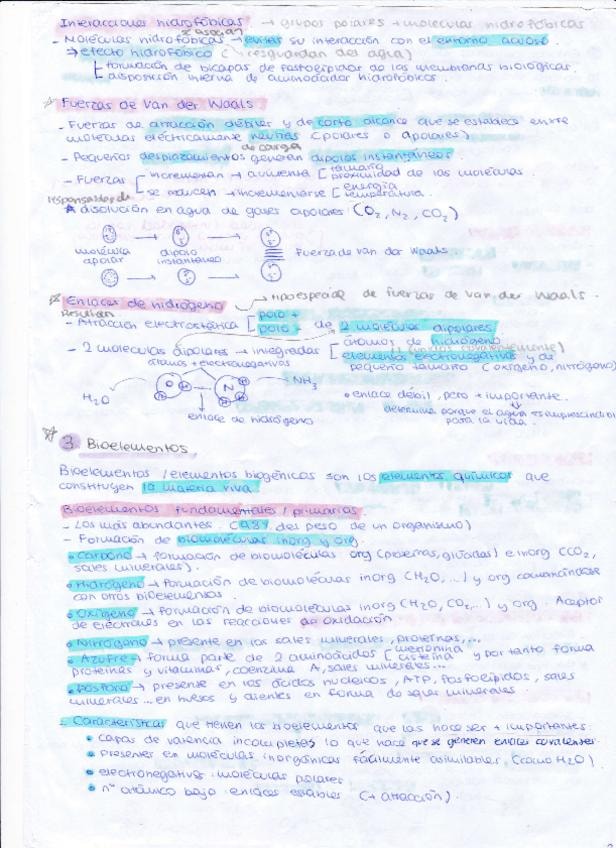 Interacciones hidrofóbicas → grupos polares + moléculas hidrofóbicas
se asocian
- Moléculas hidrofóbicas → evitar su interacción con el entorno acuoso.
→ efecto hidrofóbico (→ resguardan del agua)
formación de bicapas de fosfolípidos de las membranas biológicas.
disposición interna de aminoácidos hidrofóbicos.
☆ Fuerzas de Van der Waals
- Fuerzas de atracción débiles y de corto alcance que se establece entre
moléculas eléctricamente neutras (polares o apolares)
de carga
- Pequeños desplazamientos generan dipolos instantáneos.
- Fuerzas incrementan → aumenta tamaño
proximidad de las moléculas.
se reducen → incrementarse energía
temperatura.
responsables de
disolución en agua de gases apolares (O2, N2, CO2)
molécula apolar
dipolo instantáneo
Fuerza de van der Waals
☆ Enlaces de hidrógeno → tipo especial de fuerzas de van der Waals.
Resultan
- Atracción electrostática polo +
polo - de 2 moléculas dipolares
- 2 moléculas dipolares → integradas átomos de hidrógeno
(unidos covalentemente)
elementos electronegativos y de
pequeño tamaño (oxígeno, nitrógeno)
átomos + electronegativos
H2O O H H N H H NH3
enlace de hidrógeno
• enlace débil, pero + importante.
determina porque el agua es imprescindible
para la vida.
☆ 3. Bioelementos.
Bioelementos / elementos biogénicos son los elementos químicos que
constituyen la materia viva.
Bioelementos fundamentales / primarios.
- Los más abundantes. (98% del peso de un organismo)
- Formación de biomoléculas inorg y org.
• Carbono → formación de biomoléculas org (proteínas, glúcidos) e inorg (CO2,
sales minerales).
• Hidrógeno → formación de biomolécula inorg (H2O, ...) y org combinándose
con otros bioelementos.
• Oxígeno → formación de biomoléculas inorg (H2O, CO2, ...) y org. Aceptor
de electrones en las reacciones de oxidación
• Nitrógeno → presente en las sales minerales, proteínas,...
• Azufre → forma parte de 2 aminoácidos metionina
cisteína y por tanto forma
proteínas y vitaminas, coenzima A, sales minerales...
• Fósforo → presente en los ácidos nucleicos, ATP, fosfolípidos, sales
minerales... en huesos y dientes en forma de sales minerales
- Características que tienen los bioelementos que las hace ser + importantes:
• capas de valencia incompletas lo que hace que se generen enlaces covalentes.
• presentes en moléculas inorgánicas fácilmente asimilables. (como H2O)
• electronegativos: moléculas polares
• nº atómico bajo: enlaces estables (+ atracción).